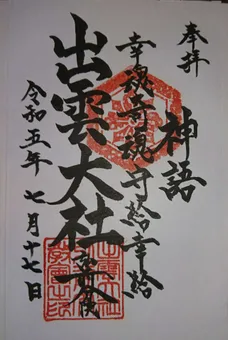 奉拝
神語
幸魂奇魂守給幸給
出雲大社
令和五年 七月十七日